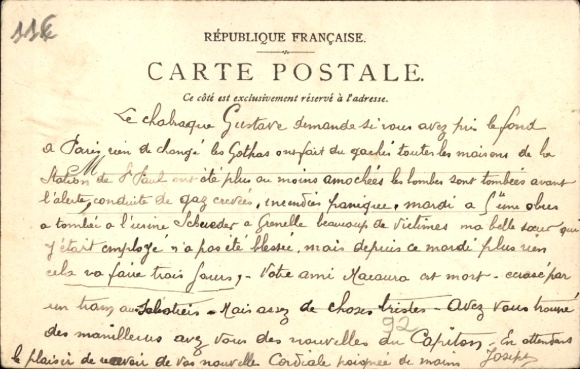 11€
RÉPUBLIQUE FRANÇAISE.
CARTE POSTALE.
Ce côté est exclusivement réservé à l'adresse.
Le Gustave demande si vous avez pris le fond
a Paris rien de changé les Gothas ont fait du gachis toutes les maisons de la
M
Station de St Paul ont été plus ou moins amochées les bombes sont tombées avant
l'alerte, conduite de gaz crevées, incendies panique, mardi a 5h une obus
a tombée a l'usine a Grenelle beaucoup de victimes ma belle sœur qui
y était employe n'a pas été blessée, mais depuis ce mardi plus rien
cela va faire trois jours, - Votre ami Macaura est mort - ecrasé par
un tram au - Mais assez de choses tristes - Avez vous trouvé
92
des manilleurs avez vous des nouvelles du Capiton - En attendant
le plaisir de recevoir de vos nouvelle Cordiale poignée de main Joseph